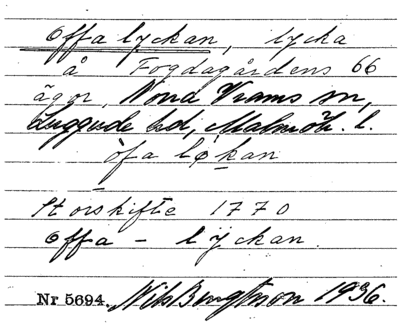 Offa lyckan, lycka
å Fogdagårdens 66
ägor, Norra Vrams sn,
Luggude hd, Malmöh. l.
ò̱fa lø̱kan
Storskifte 1770
Offa - lyckan.
Nr 5694. Nils Bengtsson 1936.